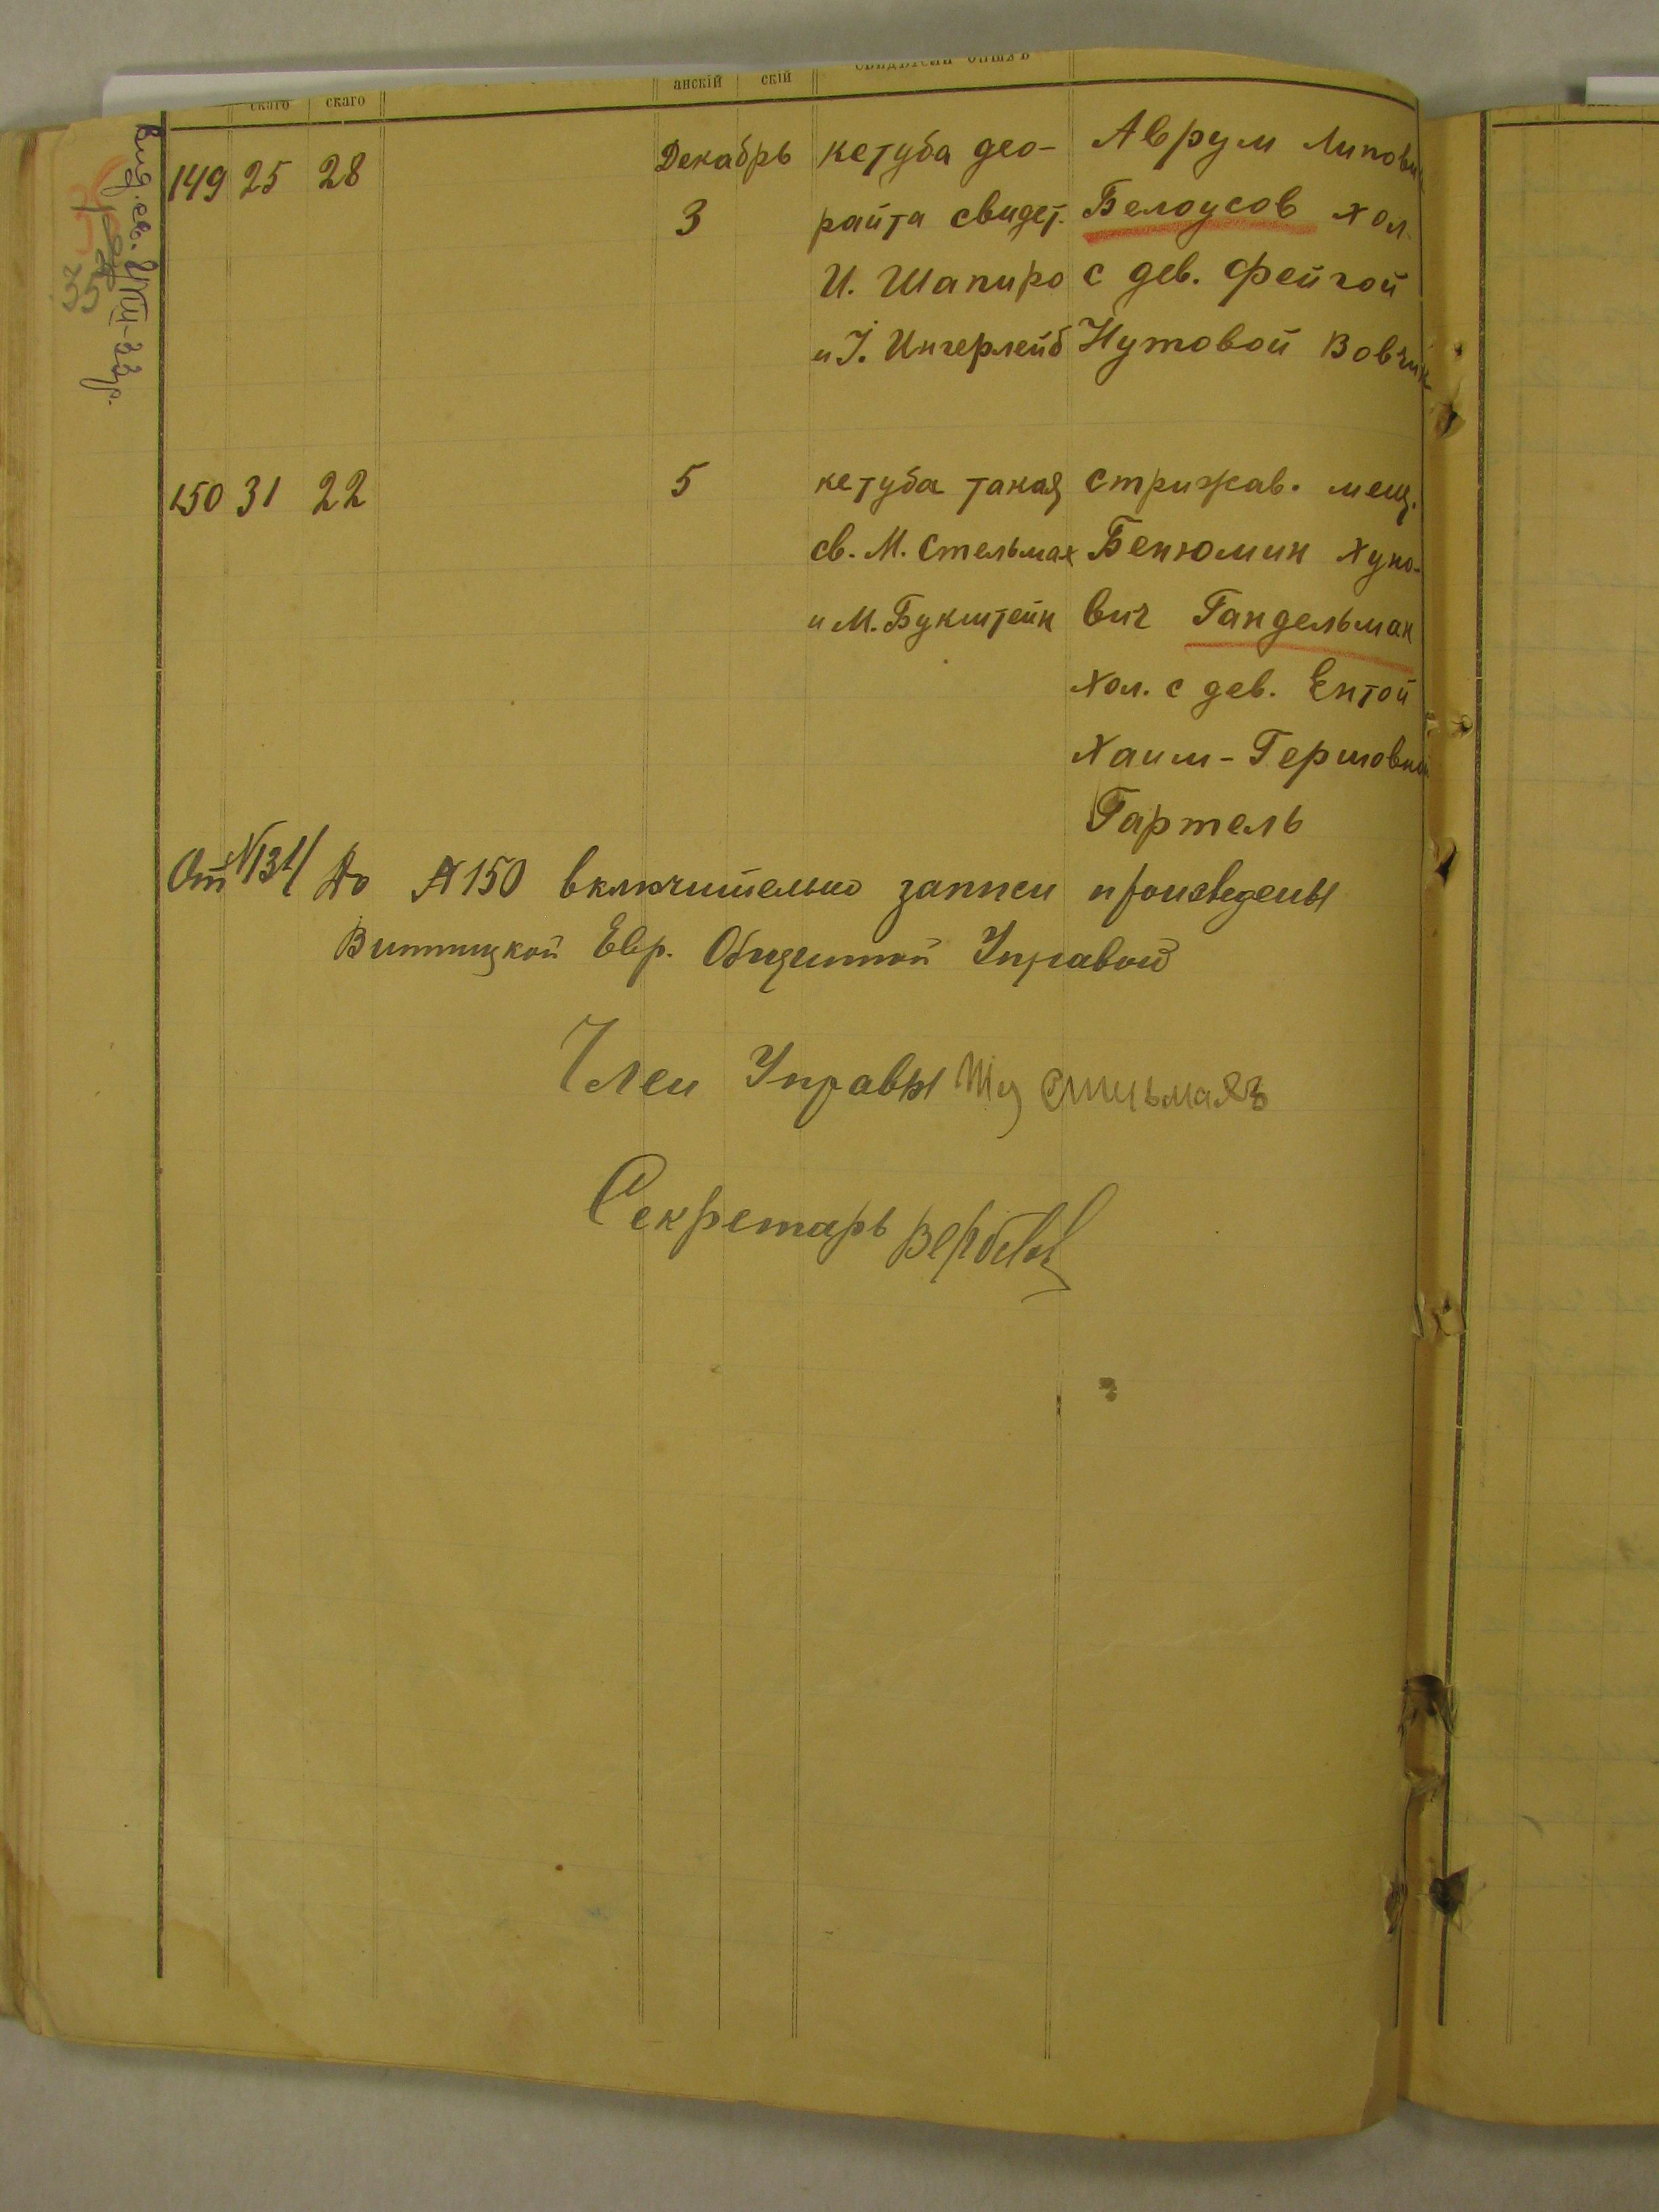 скаго скаго анскій скій
149 25 28 Декабрь кетуба део- Аврум Липович
3 райта свидет. Белоусов хол.
И. Шапиро с дев. Фейгой
и І. Ингерлейб Нутовой Вовчик
150 31 22 5 кетуба такая Стрижав. мещ.
св. М. Стельмах Бенюмин Хуно-
и М. Букштейн вич Гандельман
хол. с дев. Ентой
Хаим-Гершовной
Гартель
От №131 До №150 включительно записи произведены
Винницкой Евр. Общинной Управой
Член Управы Стельмахъ
Секретарь
Выд. св. VIII-22г.